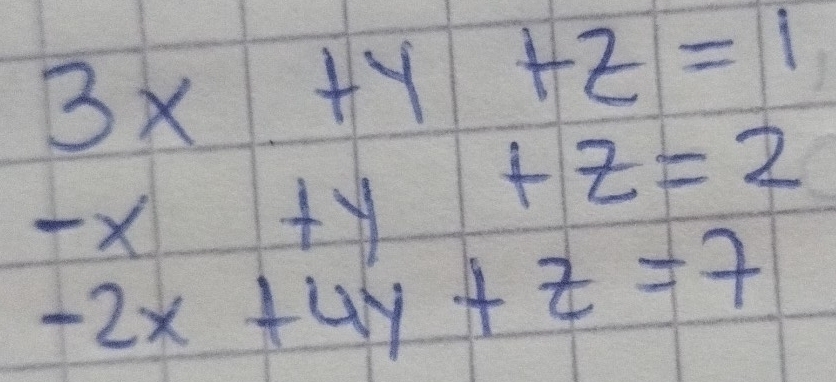 3x +y +z = 1
-x +y +z = 2
-2x +4y + z = 7